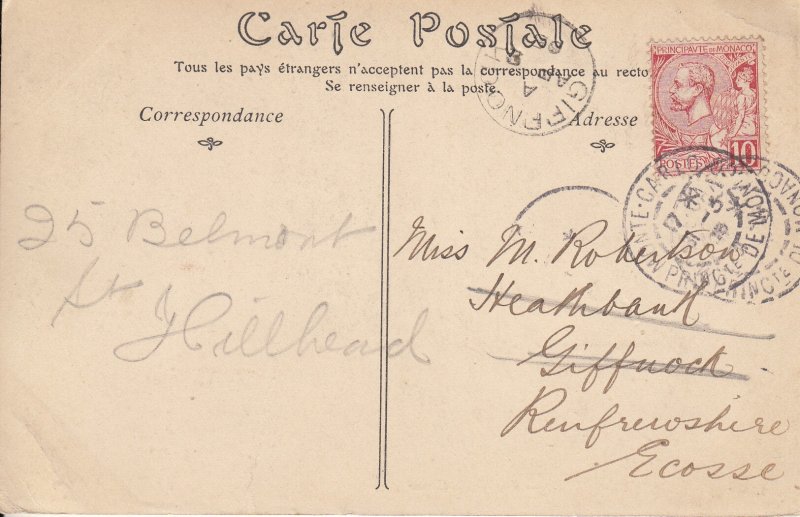 Carte Postale
Tous les pays étrangers n'acceptent pas la correspondance au recto.
Se renseigner à la poste.
Correspondance
Adresse
PRINCIPAUTÉ DE MONACO
POSTES
10
GIFFNOCK
A
MONTE-CARLO
PRINCTE DE MONACO
25 Belmont
St Hillhead
Miss M. Robertson
Heathbank
Giffnock
Renfrewshire
Ecosse